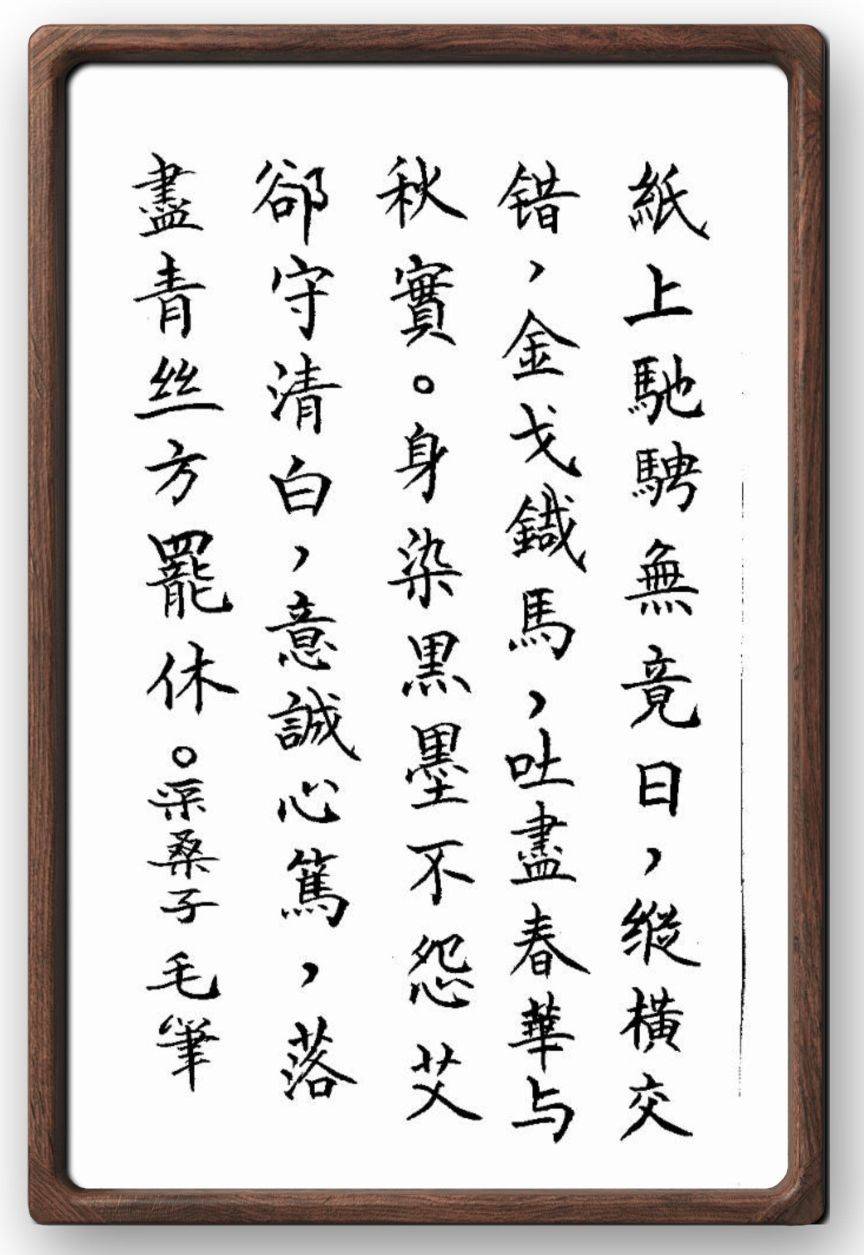 紙上馳騁無竟日，縱橫交
错，金戈鐡馬，吐盡春華与
秋實。身染黒墨不怨艾
郤守清白，意誠心篤，落
盡青丝方罷休。采桑子毛筆